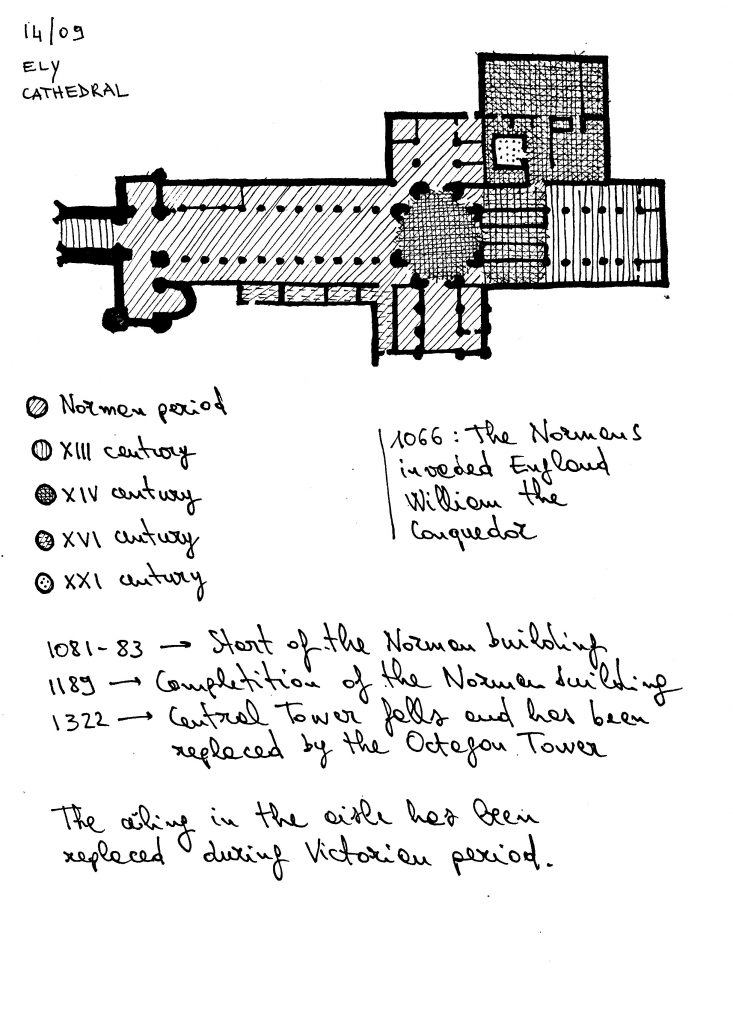 14/09
ELY
CATHEDRAL
Norman period
XIII century
XIV century
XVI century
XXI century
1066: The Normans
invaded England
William the
Conquedor
1081-83 → Start of the Norman building
1189 → Completition of the Norman building
1322 → Central Tower falls and has been
replaced by the Octagon Tower
The ceiling in the aisle has been
replaced during Victorian period.